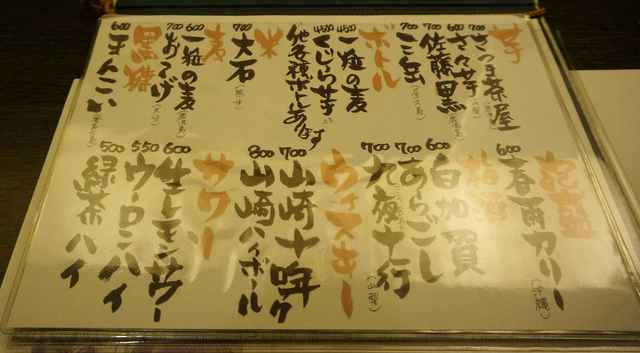 芋
700 さつま茶屋
600 さくら芋
700 佐藤黒
700 三岳
ボトル
450 一粒の麦
450 くじら芋
他各種ボトルあります
米
700 大石
麦
600 一粒の麦
700 おこげ
黒糖
600 まんこい
泡盛
600 春雨カリー (沖縄)
梅酒
600 白加賀
700 あらごし
700 九夜十行
ウィスキー
700 山崎十年ロック
800 山崎ハイボール
サワー
600 生レモンサワー
550 ウーロンハイ
500 緑茶ハイ